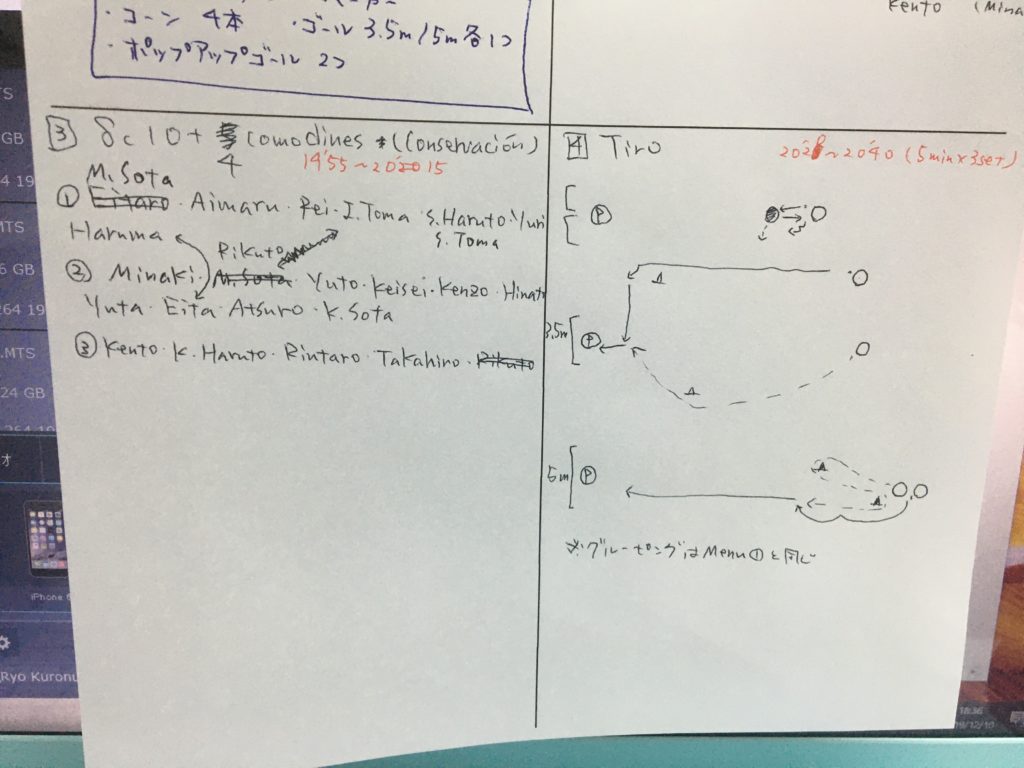 ・コーン 4本 ・ゴール 3.5m/5m各1つ
・ポップアップゴール 2つ
Kento (Mina
3 8c10+ 4 Comodines *(Conservación)
14'55~20 15
M.Sota
① Eitaro・Aimaru・Rei・I.Toma S.Haruto・Yuri
Haruma S.Toma
Rikuto
② Minaki・M.Sota・Yuto・Keisei・Kenzo・Hinato
Yuta・Eita・Atsuro・K.Sota
③ Kento・K.Haruto・Rintaro・Takahiro・Rikuto
4 Tiro
20'40 (5min×3set)
P
3.5m P
5m P
※グルーピングはMenu①と同じ
TS
GB
4 19
MTS
6 GB
264 19
.MTS
24 GB
264 19
オ
iPhone 6
Ryo Kuronu
18:36